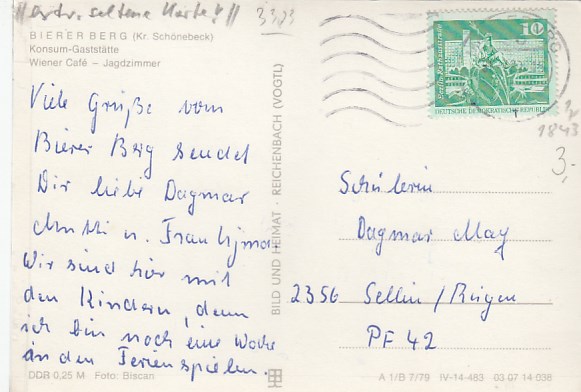 extr. seltene Karte!
BIERER BERG (Kr. Schönebeck)
Konsum-Gaststätte
Wiener Café – Jagdzimmer
Viele Grüße vom
Bierer Berg sendet
Dir liebe Dagmar
Mutti u. Frau
Wir sind hier mit
den Kindern, denn
ich bin noch eine Woche
in den Ferienspielen.
DDR 0,25 M Foto: Biscan
BILD UND HEIMAT · REICHENBACH (VOGTL)
10
DEUTSCHE DEMOKRATISCHE REPUBLIK
1843
3,-
Schülerin
Dagmar May
2356 Sellin/Rügen
PF 42
A 1/B 7/79 IV-14-483 03 07 14 038